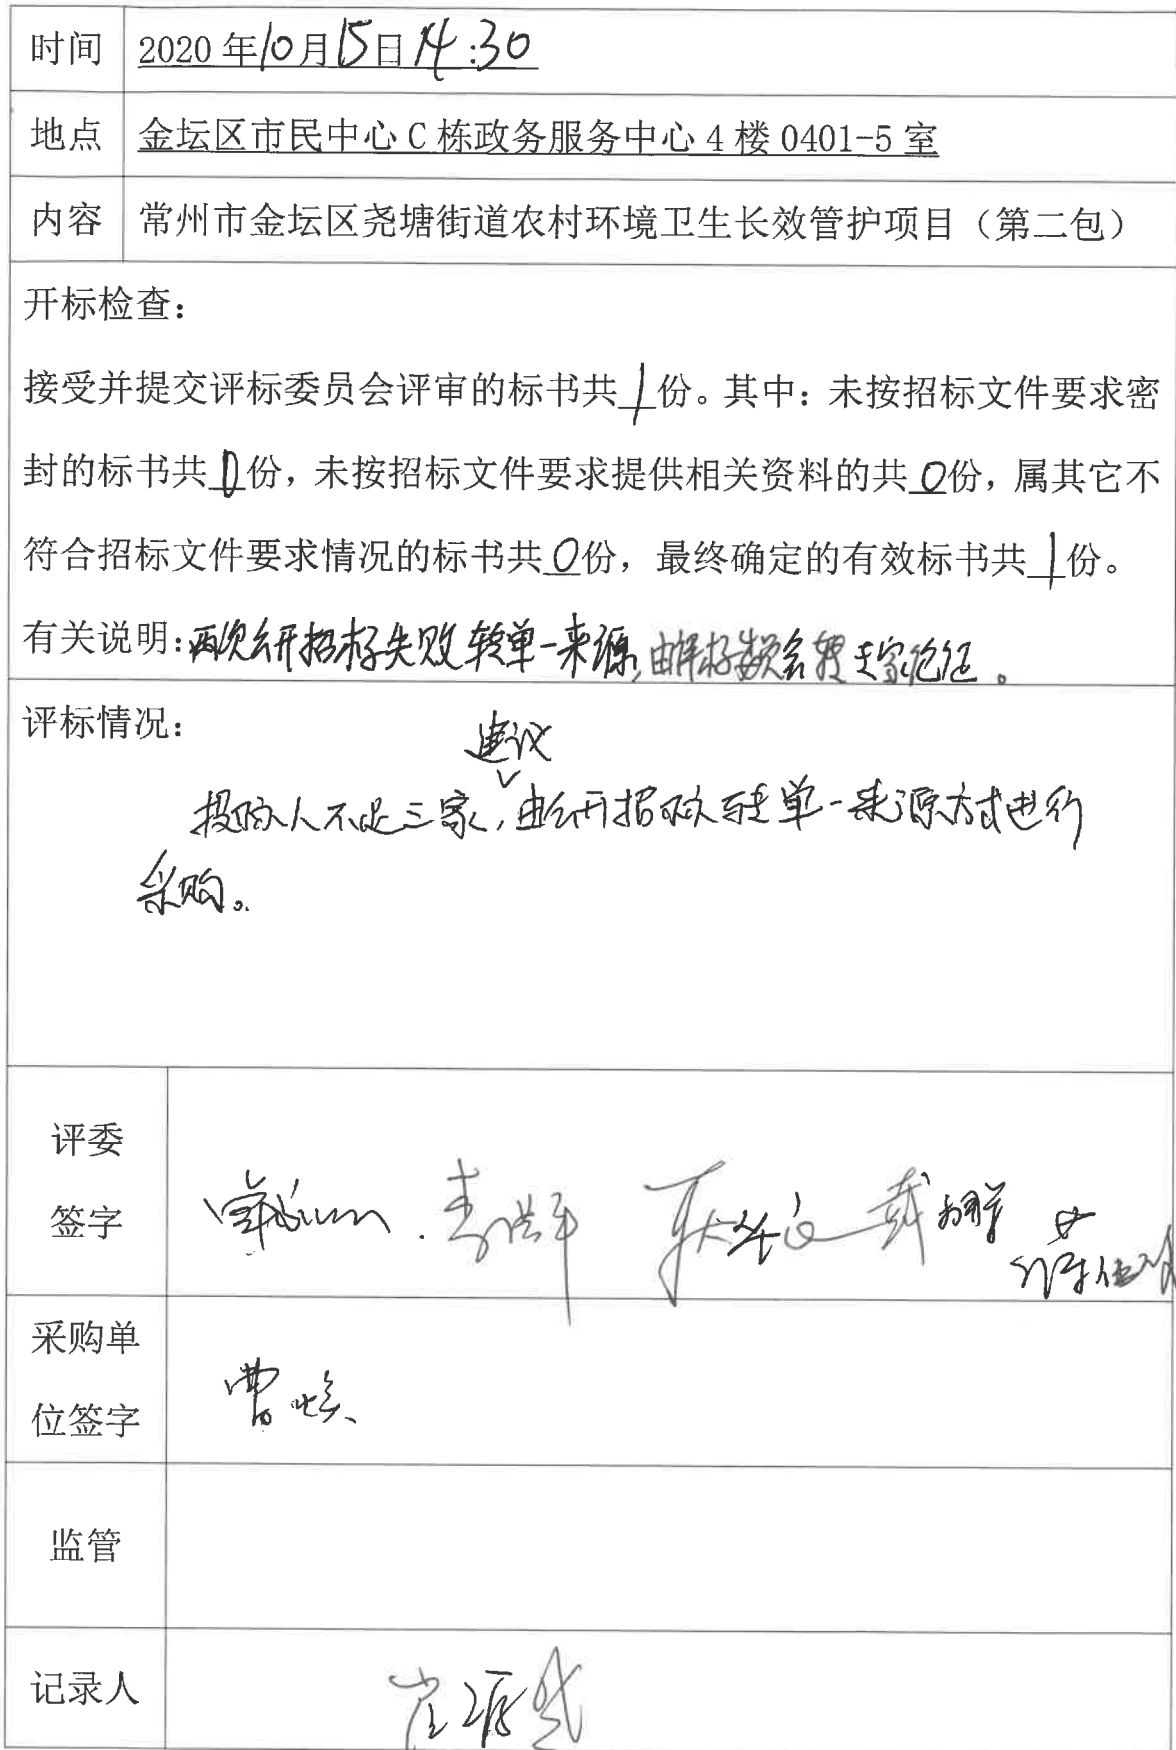 时间 2020年10月15日14:30
地点 金坛区市民中心C栋政务服务中心4楼0401-5室
内容 常州市金坛区尧塘街道农村环境卫生长效管护项目（第二包）
开标检查：
接受并提交评标委员会评审的标书共1份。其中：未按招标文件要求密
封的标书共0份，未按招标文件要求提供相关资料的共0份，属其它不
符合招标文件要求情况的标书共0份，最终确定的有效标书共1份。
有关说明：两次公开招标失败转单一来源，由评标委员会转专家论证。
评标情况：
建议
投标人不足三家，由公开招标转单一来源方式进行
采购。
评委
签字
采购单
位签字 曹
监管
记录人 崔